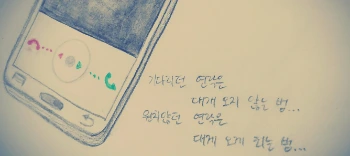 기다리던 연락은
대개 오지 않는 법...
원치않던 연락은
대개 오게 되는 법...